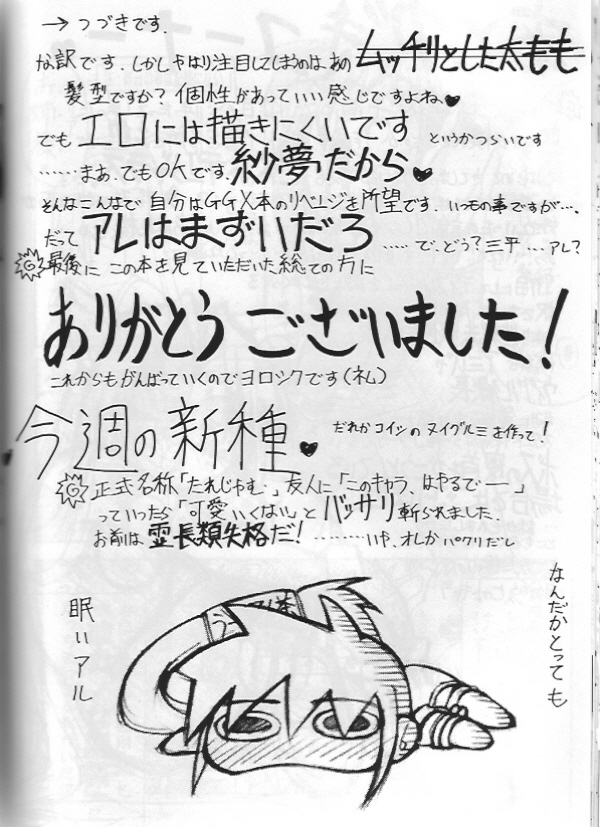 →つづきです.
な訳です.しかしやはり注目してしまうのは、あの ムッチリとした太もも
髪型ですか?個性があっていい感じですよね♥
でもエロには描きにくいです というかつらいです
……まあ、でもOKです.紗夢だから♥
そんなこんなで自分はGGX本のリベンジを所望です.いつもの事ですが….
だってアレはまずいだろ……で、どう?三平…アレ?
最後にこの本を見ていただいた総ての方に
ありがとうございました!
これからもがんばっていくのでヨロシクです(礼)
今週の新種♥ だれかコイツのヌイグルミを作って!
正式名称「たれじゃむ」友人に「このキャラ、はやるでー」
っていったら「可愛いくない」とバッサリ斬られました.
お前は霊長類失格だ!………いや、オレがパクリだし
なんだかとっても
眠いアル